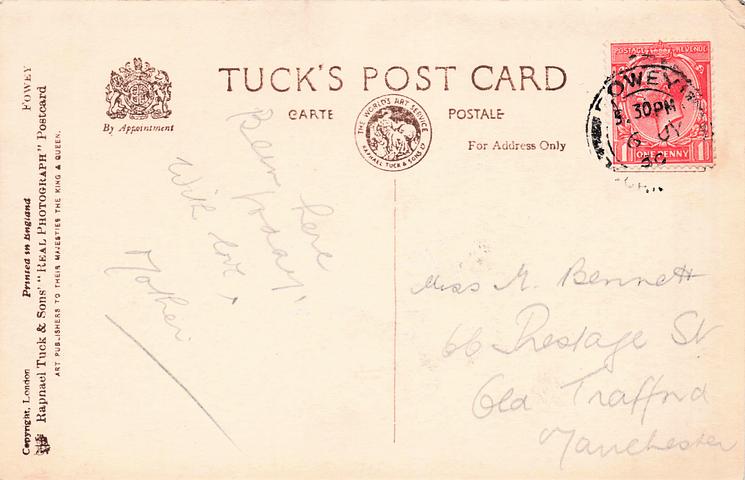 TUCK'S POST CARD
CARTE POSTALE
By Appointment
THE WORLD'S ART SERVICE
RAPHAEL TUCK & SONS LD
For Address Only
POSTAGE REVENUE
ONE PENNY
1 1
FOWEY
5.30PM
6 JY
30
Been here
today,
With love,
Mother
Miss M. Bennett
66 Prestage St
Old Trafford
Manchester
FOWEY
Copyright, London Printed in England
Raphael Tuck & Sons' "REAL PHOTOGRAPH" Postcard
ART PUBLISHERS TO THEIR MAJESTIES THE KING & QUEEN.